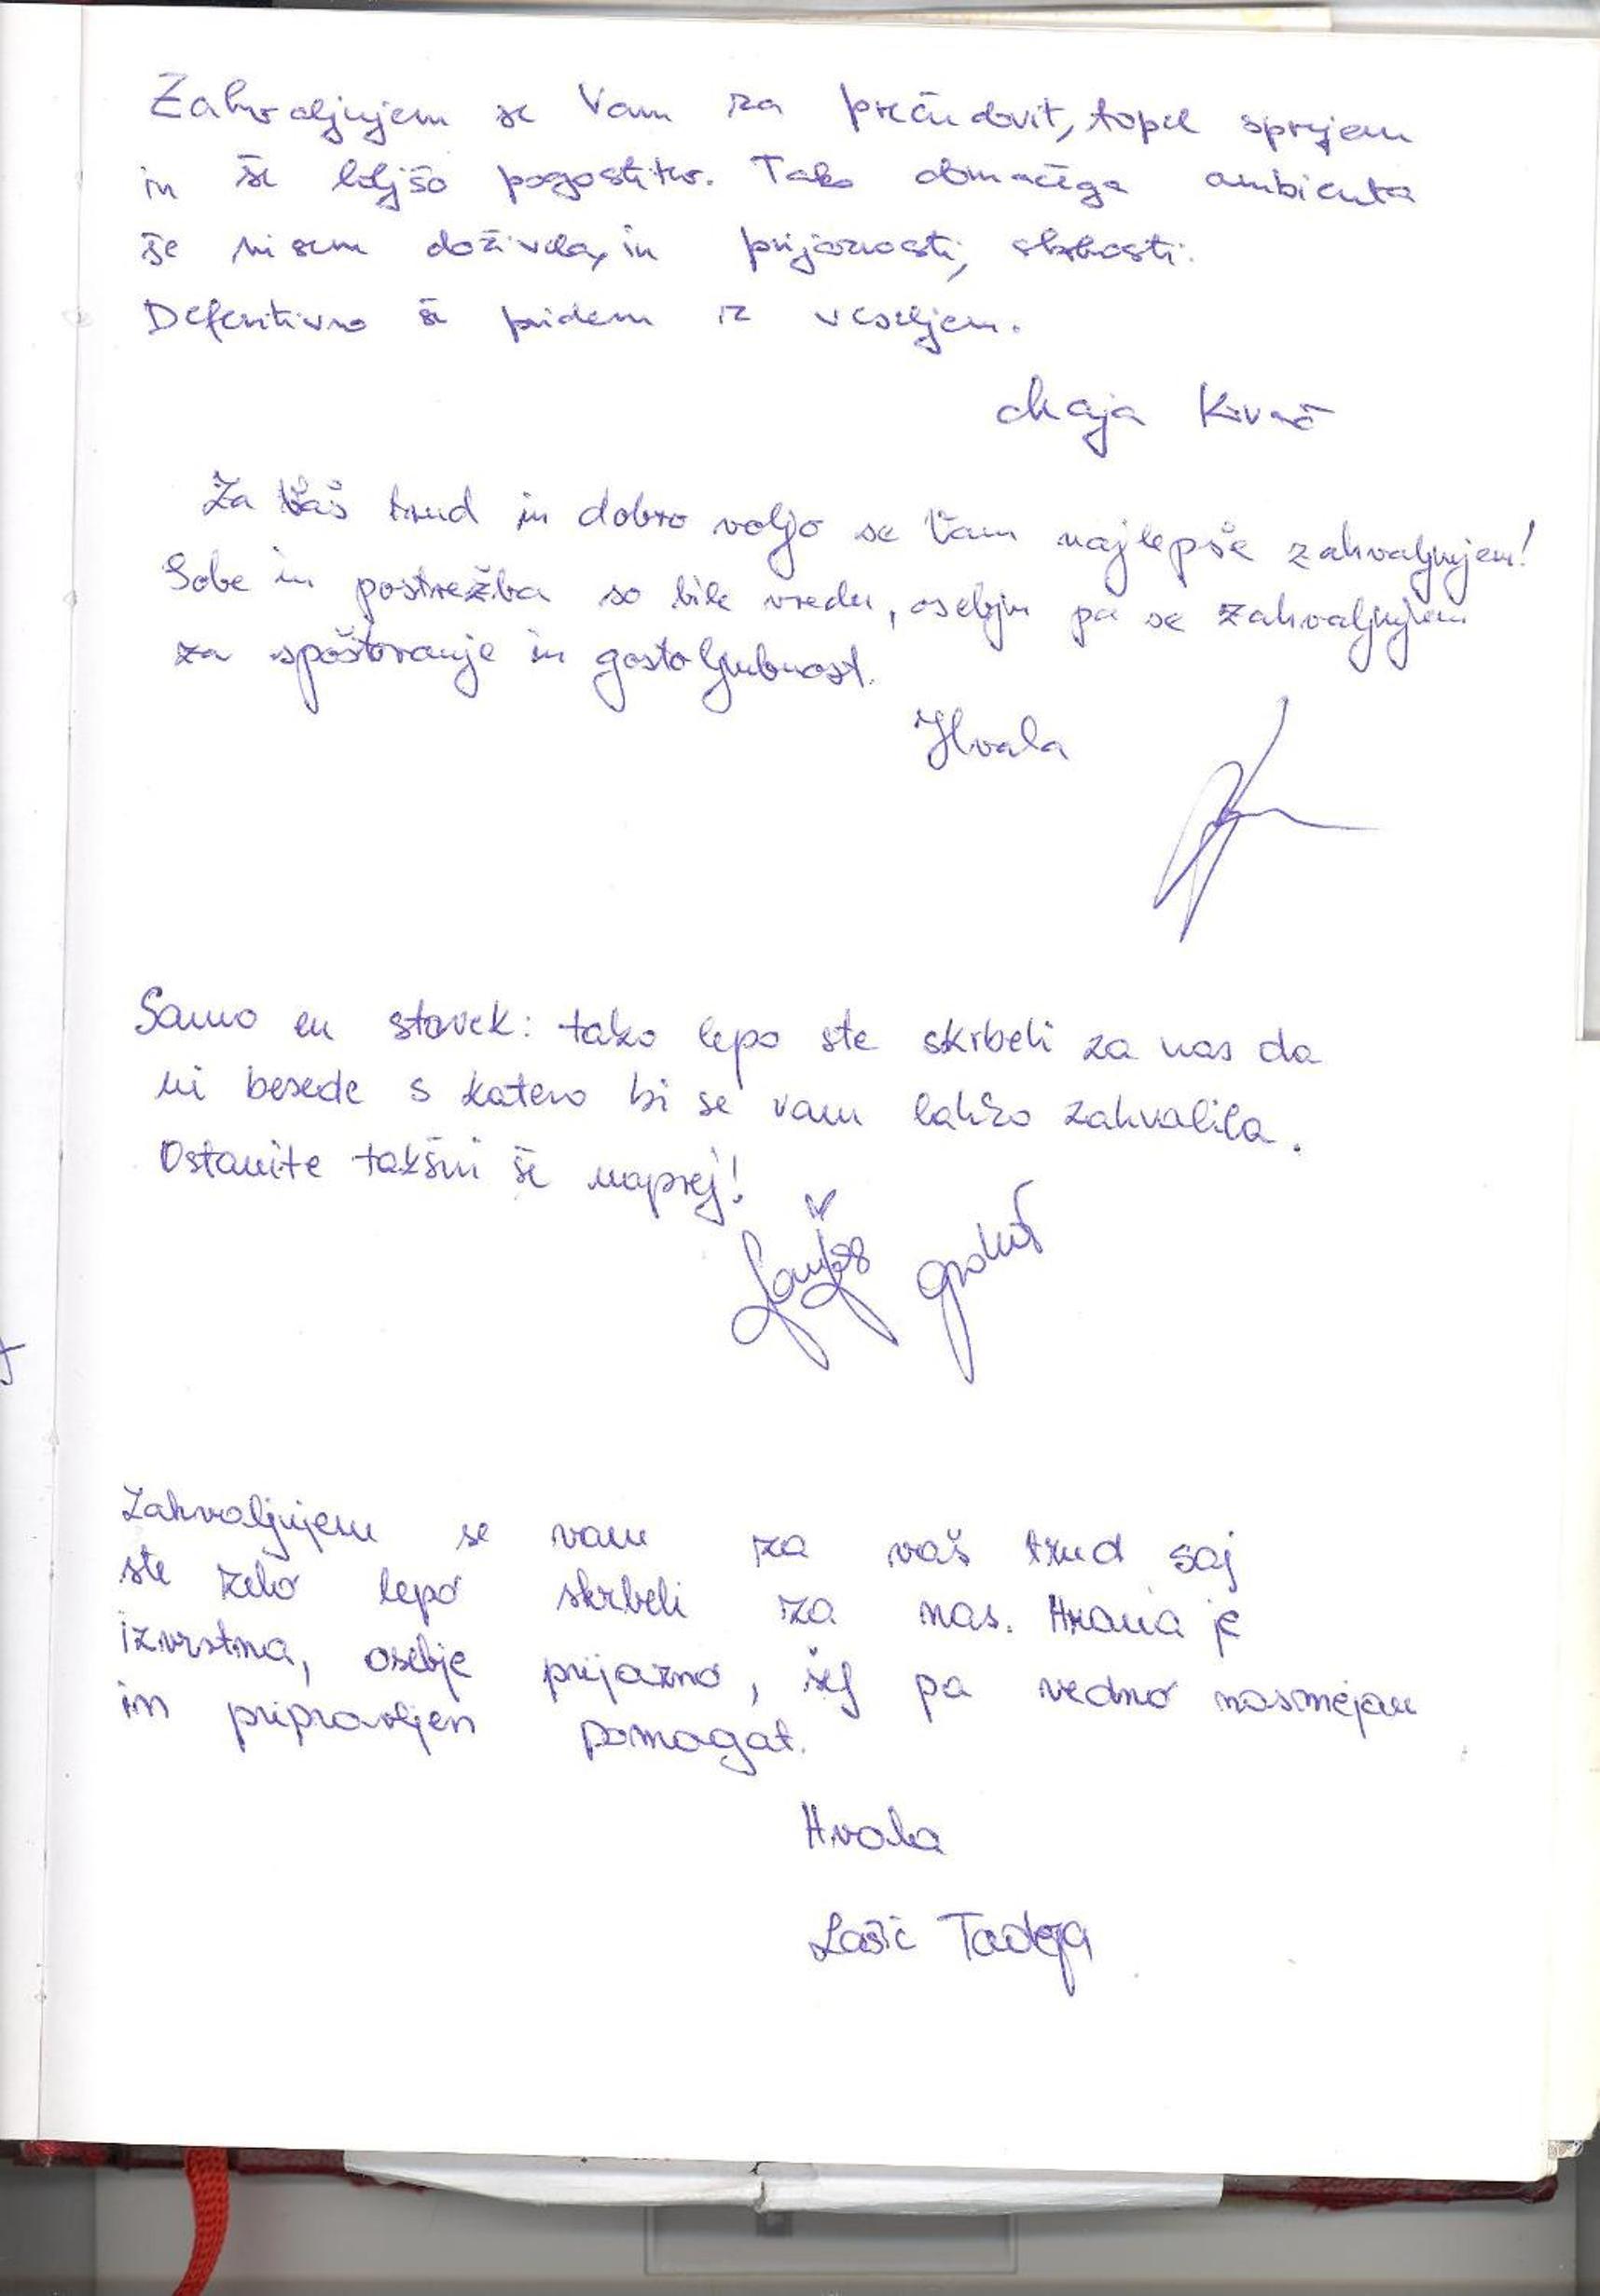 Zahvaljujem se Vam za prečudovit, topel sprejem
in še boljšo pogostitev. Tako domačega ambienta
še nisem doživela, in prijaznosti, skrbnosti.
Defenitivno še pridem iz veseljem.
Maja
Za Vaš trud in dobro voljo se Vam najlepše zahvaljujem!
Sobe in postrežba so bile vredu, osebju pa se zahvaljujem
za spoštovanje in gostoljubnost.
Hvala
Samo en stavek: tako lepo ste skrbeli za nas da
ni besede s katero bi se vam lahko zahvalila.
Ostanite takšni še naprej!
Zahvaljujem se vam za vaš trud saj
ste zelo lepo skrbeli za nas. Hrana je
izvrstna, osebje prijazno, šef pa vedno nasmejan
in pripravljen pomagat.
Hvala
Lašič Tadeja